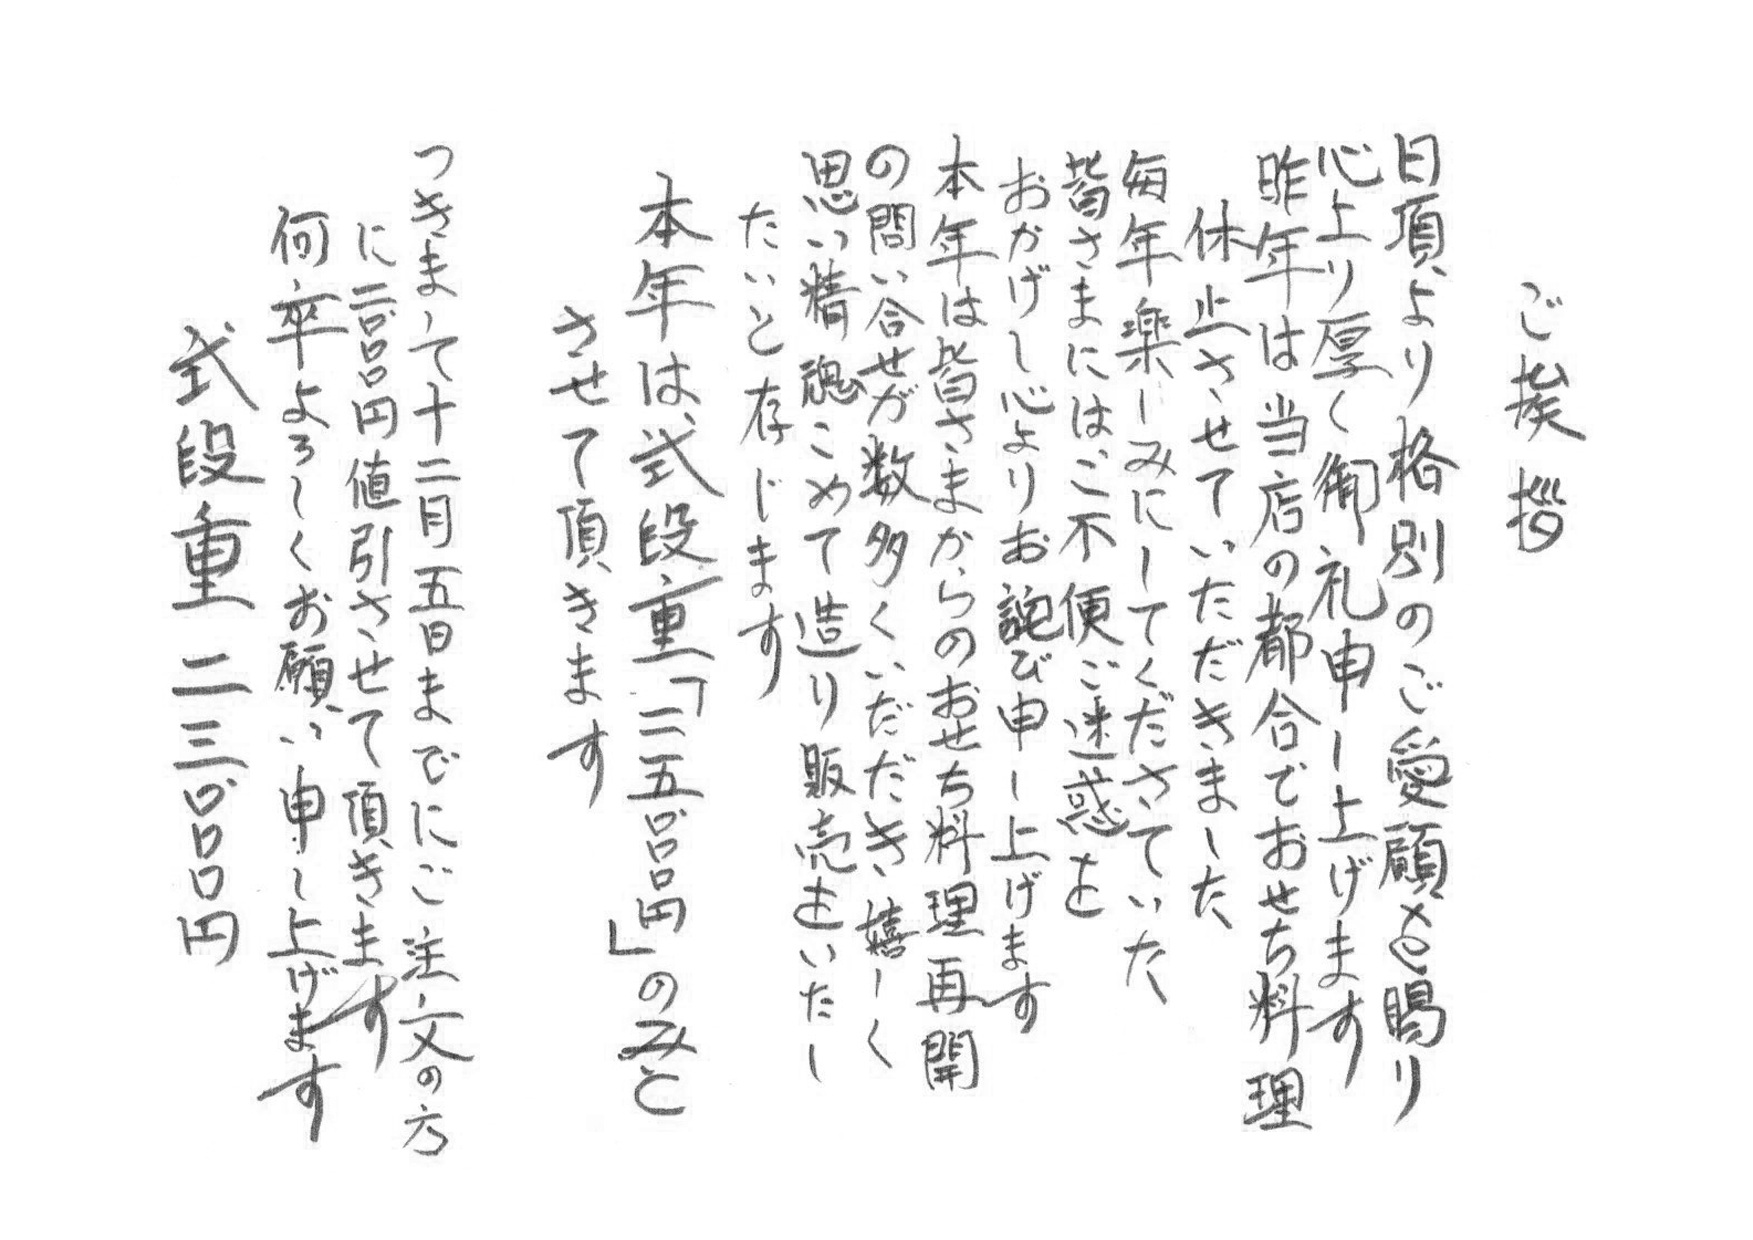 ご挨拶
日頃より格別のご愛顧を賜り
心より厚く御礼申し上げます
昨年は当店の都合でおせち料理
休止させていただきました
毎年楽しみにしてくださっていた
皆さまにはご不便ご迷惑を
おかけし心よりお詫び申し上げます
本年は皆さまからのおせち料理再開
の問い合せが数多くいただき嬉しく
思い精魂こめて造り販売をいたし
たいと存じます
本年は、弐段重「二五〇〇〇円」のみと
させて頂きます
つきまして十二月五日までにご注文の方
に二〇〇〇円値引させて頂きます
何卒よろしくお願い申し上げます
弐段重 二三〇〇〇円